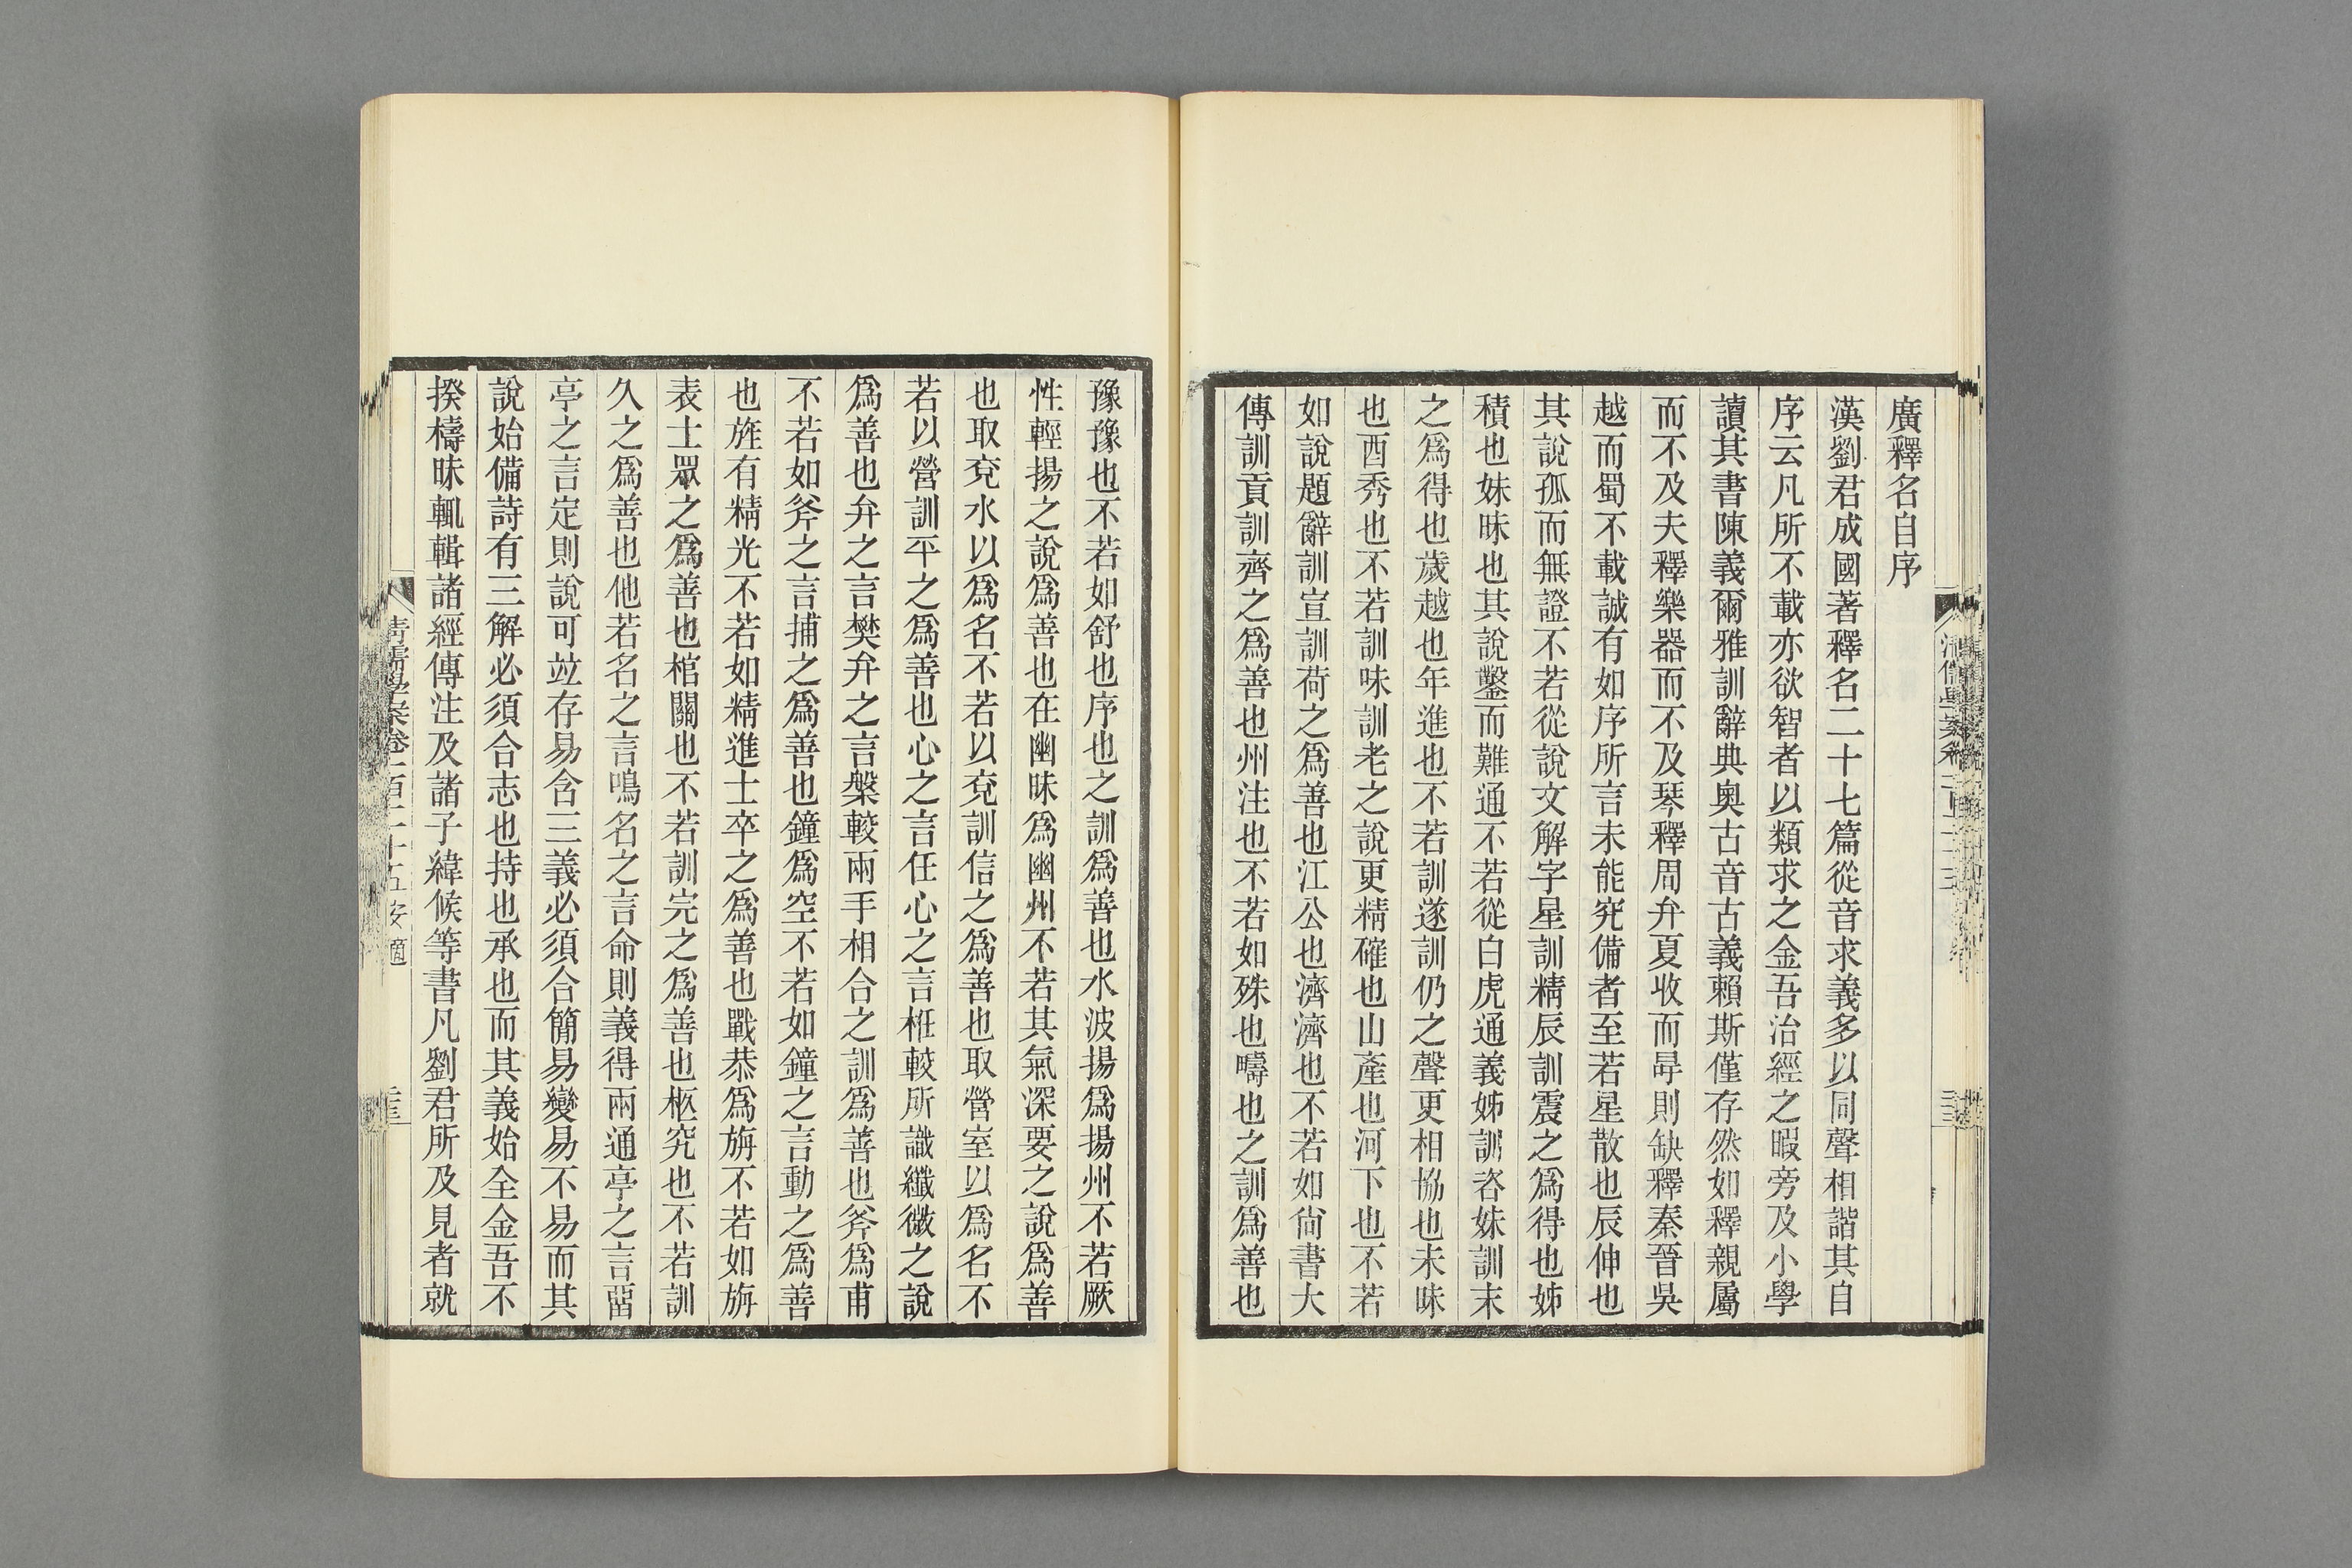 廣釋名自序
漢劉君成國著釋名二十七篇從音求義多以同聲相諧其自
序云凡所不載亦欲智者以類求之金吾治經之暇旁及小學
讀其書陳義爾雅訓辭典奧古音古義賴斯僅存然如釋親屬
而不及夫釋樂器而不及琴釋周弁夏收而冔則缺釋秦晉吳
越而蜀不載誠有如序所言未能究備者至若星散也辰伸也
其說孤而無證不若從說文解字星訓精辰訓震之爲得也姊
積也妹昧也其說鑿而難通不若從白虎通義姊訓咨妹訓末
之爲得也歲越也年進也不若訓遂訓仍之聲更相協也未昧
也酉秀也不若訓味訓老之說更精確也山產也河下也不若
如說題辭訓宣訓荷之爲善也江公也濟濟也不若如尙書大
傳訓貢訓齊之爲善也州注也不若如殊也疇也之訓爲善也
豫豫也不若如舒也序也之訓爲善也水波揚爲揚州不若厥
性輕揚之說爲善也在幽昧爲幽州不若其氣深要之說爲善
也取兗水以爲名不若以兗訓信之爲善也取營室以爲名不
若以營訓平之爲善也心之言任心之言栣較所識纖微之說
爲善也弁之言樊弁之言槃較兩手相合之訓爲善也斧爲甫
不若如斧之言捕之爲善也鐘爲空不若如鐘之言動之爲善
也旌有精光不若如精進士卒之爲善也戰恭爲旃不若如旃
表士眾之爲善也棺關也不若訓完之爲善也柩究也不若訓
久之爲善也他若名之言鳴名之言命則義得兩通亭之言畱
亭之言定則說可竝存易含三義必須合簡易變易不易而其
說始備詩有三解必須合志也持也承也而其義始全金吾不
揆檮昧輒輯諸經傳注及諸子緯候等書凡劉君所及見者就
清儒學案卷一百二十五 安適